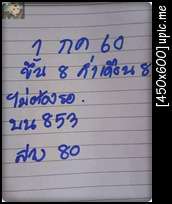 1 กค 60
ขึ้น 8 ค่ำเดือน 8
ไม่ต้องรอ.
บน 853
ล่าง 80
[450x600] upic.me